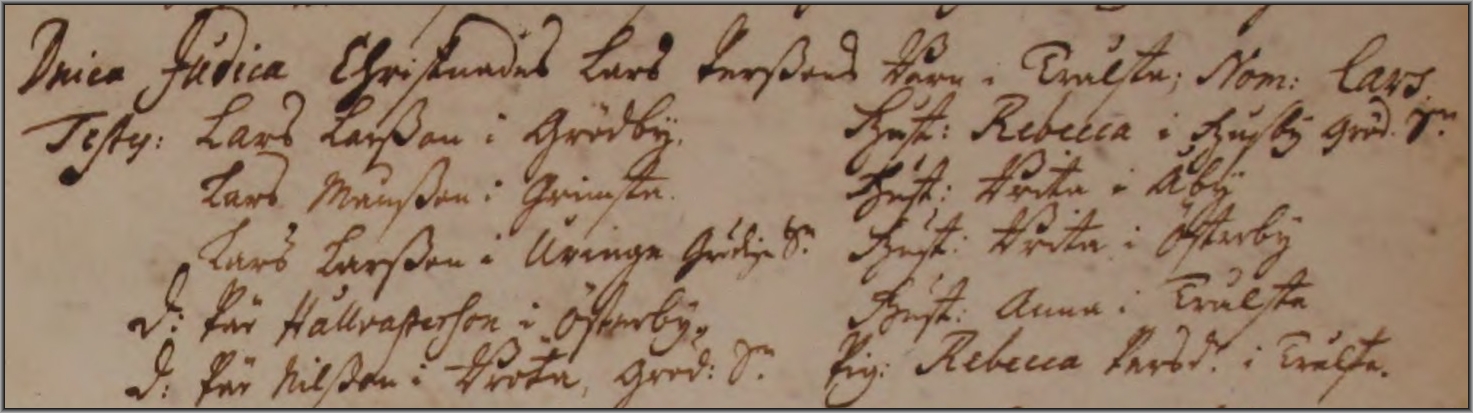 Dnica Judica Christnades Lars Perßons Barn i Trulsta; Nom: Lars.
Testes: Lars Larßon i Grödby. Hust: Rebecca i Husby Gröd. Sn
Lars Månßon i Grimsta. Hust: Brita i Åby
Lars Larßon i Uringe Grödinge Sn. Hust: Brita i Österby
D: Pär Hallvasterson i Österby. Hust: Anna i Trulsta
D: Pär Nilßon i Bröta, Gröd: Sn. Pig: Rebecca Persd. i Trulsta.